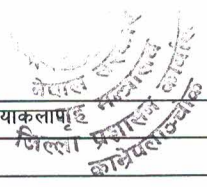 नेपाल सरकार
गृह मन्त्रालय
याकलाप
जिल्ला प्रशासन कार्यालय
काभ्रेपलाञ्चोक